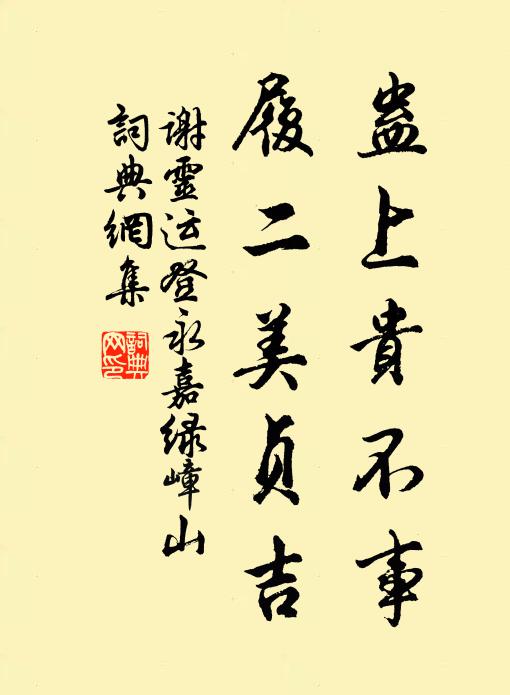 蠱上貴不事
履二美貞吉
谢靈运登永嘉绿嶂山
詞典網集
詞典
网印